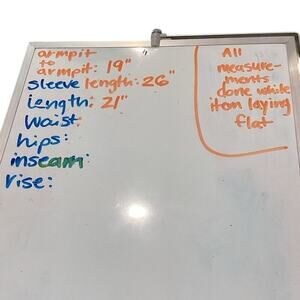 armpit
to
armpit: 19"
sleeve length: 26"
length: 21"
Waist:
hips:
inseam:
rise:
All
measure-
ments
done while
item laying
flat